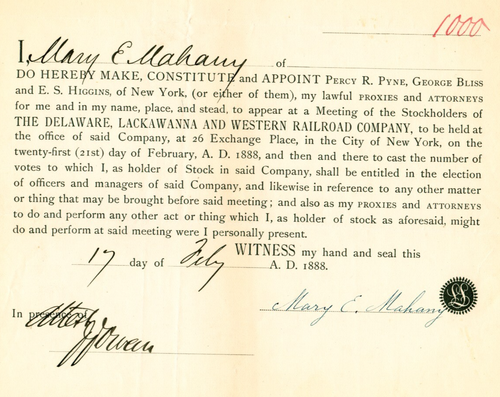 1000
I, Mary E. Mahany of
DO HEREBY MAKE, CONSTITUTE and APPOINT PERCY R. PYNE, GEORGE BLISS
and E. S. HIGGINS, of New York, (or either of them), my lawful PROXIES and ATTORNEYS
for me and in my name, place, and stead, to appear at a Meeting of the Stockholders of
THE DELAWARE, LACKAWANNA AND WESTERN RAILROAD COMPANY, to be held at
the office of said Company, at 26 Exchange Place, in the City of New York, on
the twenty-first (21st) day of February, A. D. 1888, and then and there to cast the number of
votes to which I, as holder of Stock in said Company, shall be entitled in the election
of officers and managers of said Company, and likewise in reference to any other matter
or thing that may be brought before said meeting; and also as my PROXIES and ATTORNEYS
to do and perform any other act or thing which I, as holder of stock as aforesaid, might
do and perform at said meeting were I personally present.
WITNESS my hand and seal this
17 day of Feby A. D. 1888.
Mary E. Mahany LS
In presence of
Attest